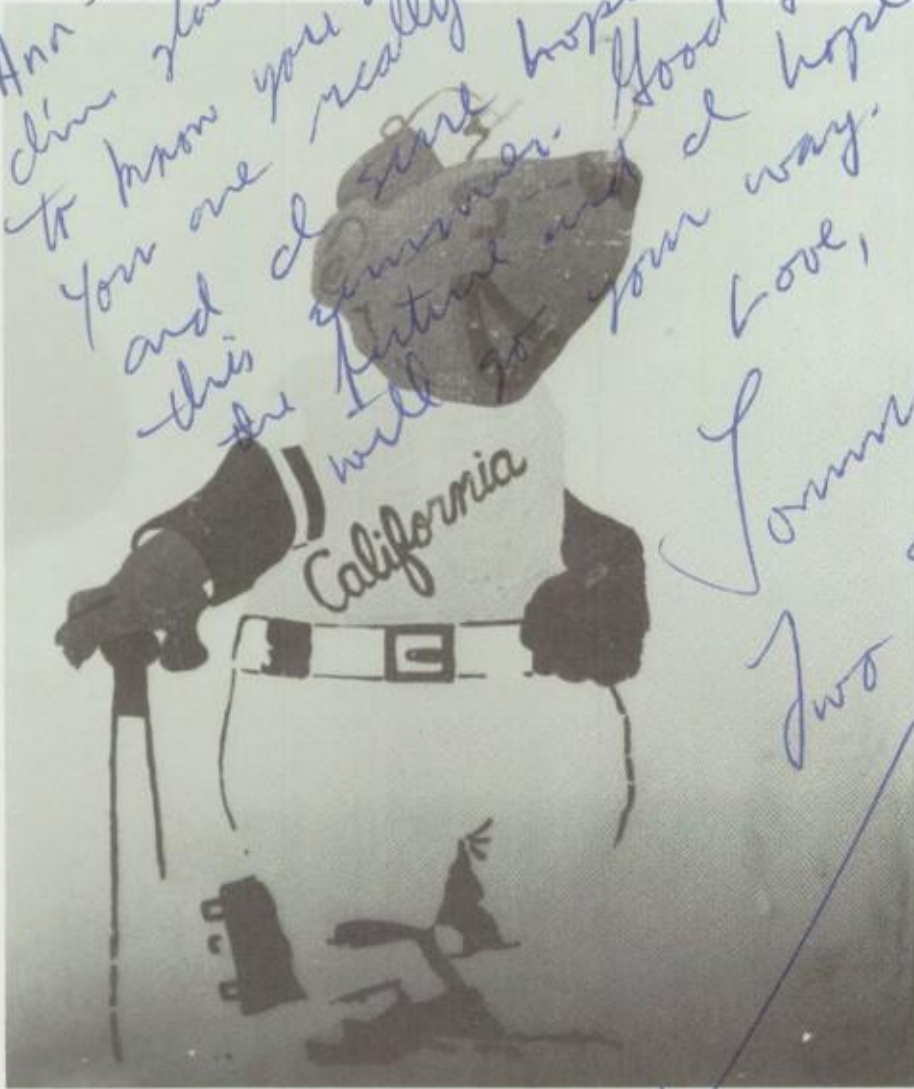 Ann
to know you
You are really
and I sure hope
this summer. Good
the future and I hope
will go your way.
Love,
Two
California